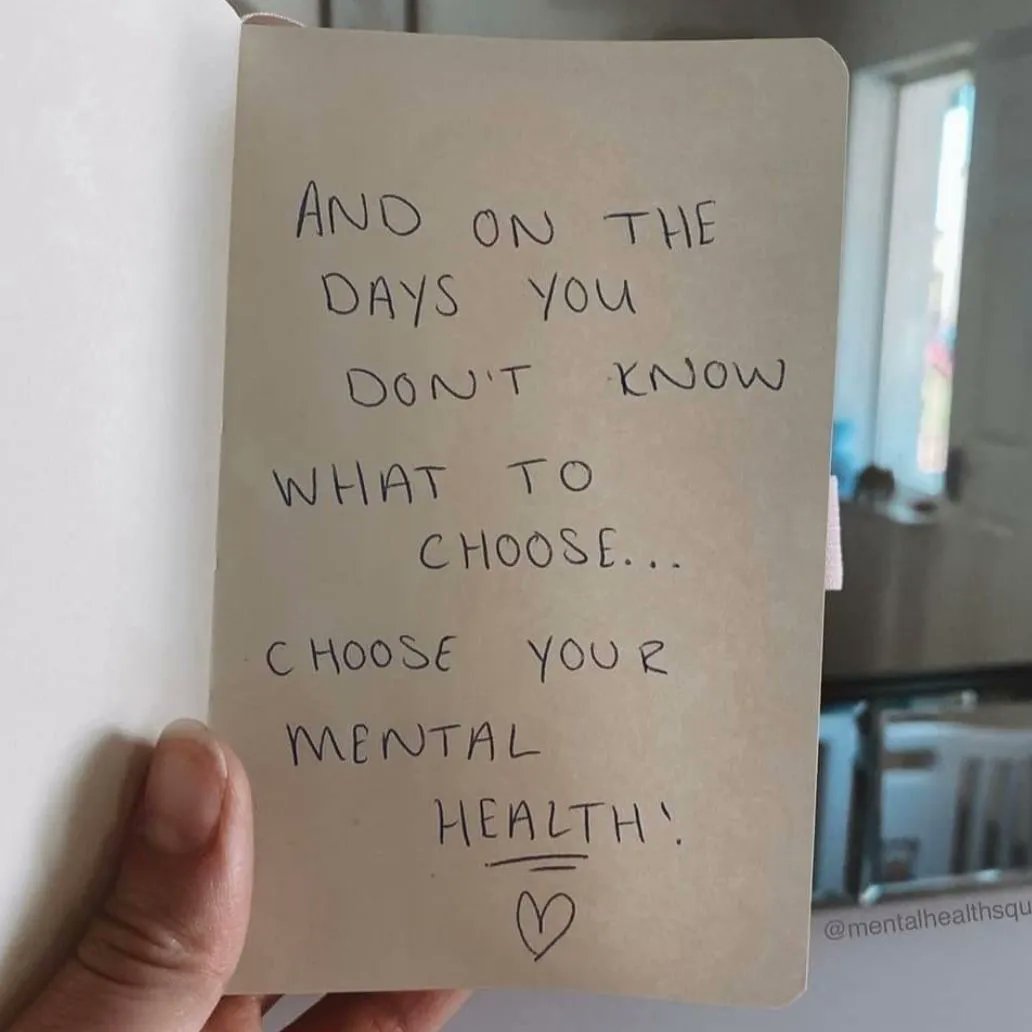 AND ON THE
DAYS YOU
DON'T KNOW
WHAT TO
CHOOSE...
CHOOSE YOUR
MENTAL
HEALTH!
@mentalhealthsqu